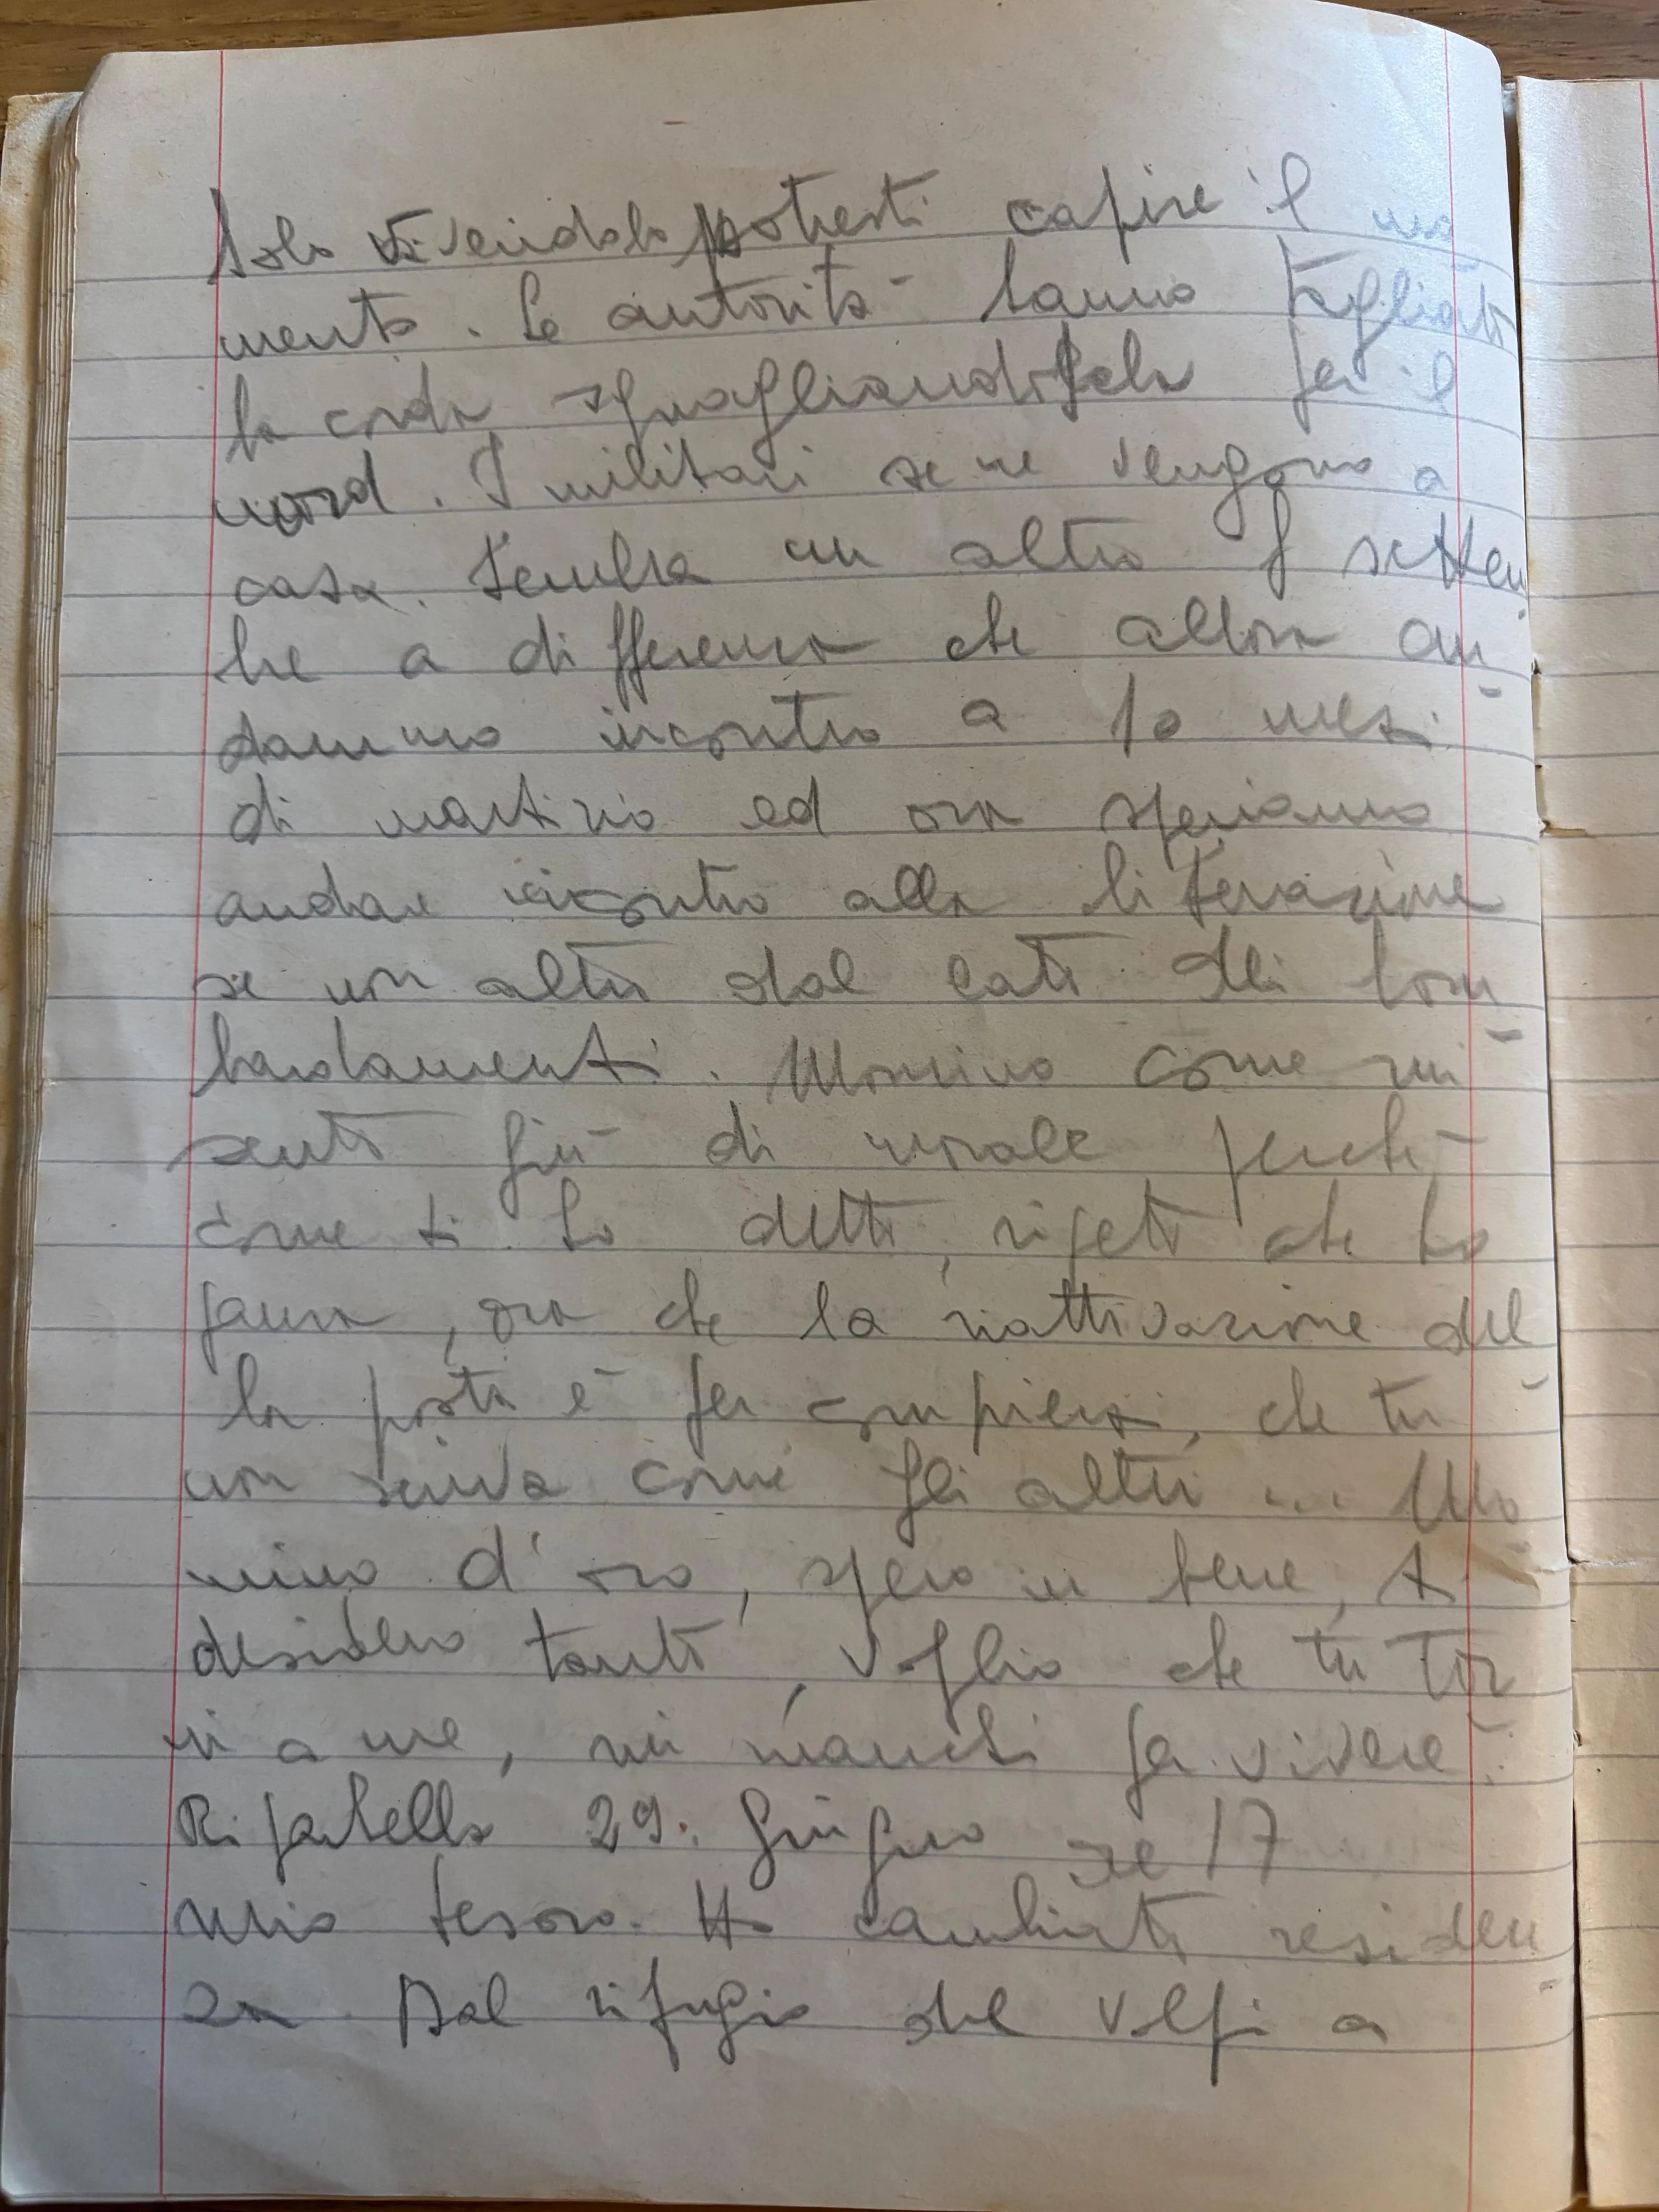 Solo vivendolo potresti capire il mo
mento. Le autorità hanno tagliato
la corda squagliandosela per il
nord. I militari se ne vengono a
casa. Sembra un altro 8 settem
bre a differenza che allora an
dammo incontro a 10 mesi
di martirio ed ora speriamo
andare incontro alla liberazione
se non altro dal lato dei bom
bardamenti. Momino come mi
sento giù di morale perché
come ti ho detto, ripeto che ho
paura, ora che la riattivazione del
la posta è per compiersi, che tu
non scriva come gli altri ... Mo
mino d'oro, spero in bene, ti
desidero tanto, voglio che tu tor
ni a me, mi manchi per vivere.
Ripatella 29. giugno ore 17
Mio tesoro. Ho cambiato residen
za Dal rifugio del Volpi a